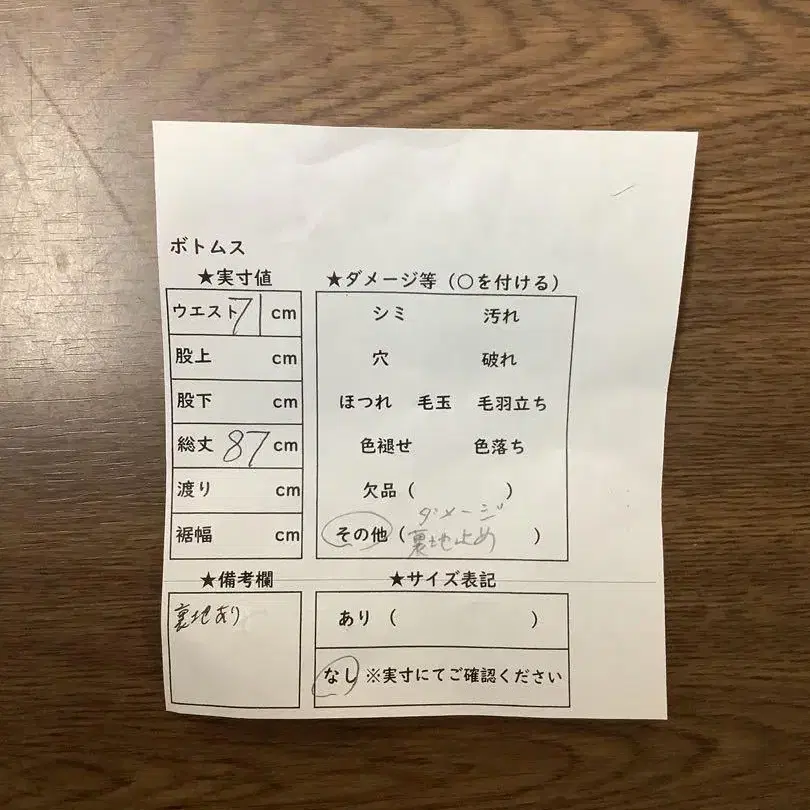 ボトムス
★実寸値
ウエスト71cm
股上 cm
股下 cm
総丈 87cm
渡り cm
裾幅 cm
★ダメージ等（○を付ける）
シミ 汚れ
穴 破れ
ほつれ 毛玉 毛羽立ち
色褪せ 色落ち
欠品（ ）
その他（ダメージ
裏地止め ）
★備考欄
裏地あり
★サイズ表記
あり（ ）
なし ※実寸にてご確認ください